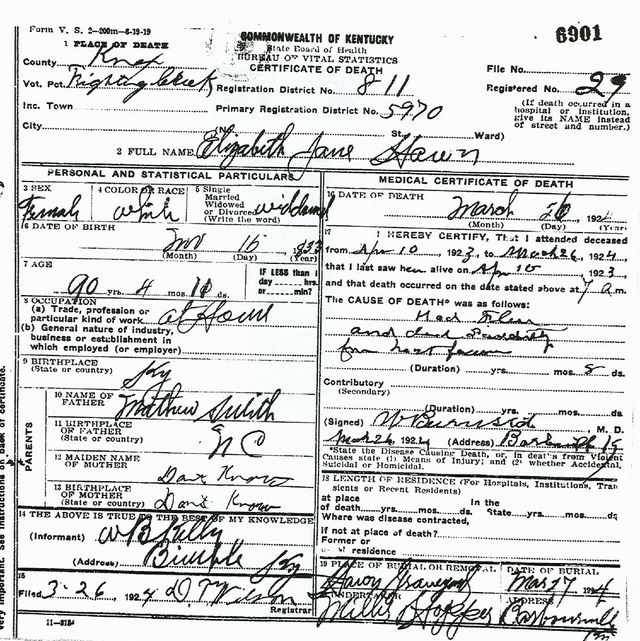 Form V. S. 2-200m-6-19-19
COMMONWEALTH OF KENTUCKY
6901
1 PLACE OF DEATH
State Board of Health
BUREAU OF VITAL STATISTICS
County Knox
CERTIFICATE OF DEATH
File No.
Vot. Pct.
Registration District No. 811
Registered No. 29
Inc. Town
Primary Registration District No. 5970
(If death occurred in a hospital or institution, give its NAME instead of street and number.)
City (No. St. Ward)
2 FULL NAME Elizabeth Jane
PERSONAL AND STATISTICAL PARTICULARS
3 SEX Female
4 COLOR OR RACE White
5 Single Married Widowed or Divorced (Write the word) Widowed
6 DATE OF BIRTH
Nov 16
(Month) (Day) (Year)
7 AGE
90 yrs. 4 mos. 10 ds.
IF LESS than 1 day hrs. or min?
8 OCCUPATION
(a) Trade, profession or particular kind of work at Home
(b) General nature of industry, business or establishment in which employed (or employer)
9 BIRTHPLACE
(State or country) Ky
PARENTS
10 NAME OF FATHER Matthew
11 BIRTHPLACE OF FATHER
(State or country) N C
12 MAIDEN NAME OF MOTHER Dont Know
13 BIRTHPLACE OF MOTHER
(State or country) Dont Know
14 THE ABOVE IS TRUE TO THE BEST OF MY KNOWLEDGE
(Informant)
(Address) Bimble Ky
15
Filed 3-26, 1924 Wilson
Registrar
11-3184
MEDICAL CERTIFICATE OF DEATH
16 DATE OF DEATH
March 26, 192
(Month) (Day) (Year)
17
I HEREBY CERTIFY, That I attended deceased
from Apr 10, 1923, to March 26, 1924,
that I last saw her alive on Apr 10, 1923,
and that death occurred on the date stated above at 7 a m.
The CAUSE OF DEATH* was as follows:
Had
and died
from
(Duration) yrs. mos. 8 ds.
Contributory
(Secondary)
(Duration) yrs. mos. ds.
(Signed) M. D.
Mch 26, 1924 (Address)
*State the Disease Causing Death, or, in deaths from Violent
Causes state (1) Means of Injury; and (2) whether Accidental,
Suicidal or Homicidal.
18 LENGTH OF RESIDENCE (For Hospitals, Institutions, Transients or Recent Residents)
at place of death yrs. mos. ds. In the State yrs. mos. ds.
Where was disease contracted,
if not at place of death?
Former or
residence
19 PLACE OF BURIAL OR REMOVAL
DATE OF BURIAL
Graveyard Mar 27 1924
UNDERTAKER
ADDRESS
Hopper Barbourville
Ky
very important. See instructions on back of certificate.